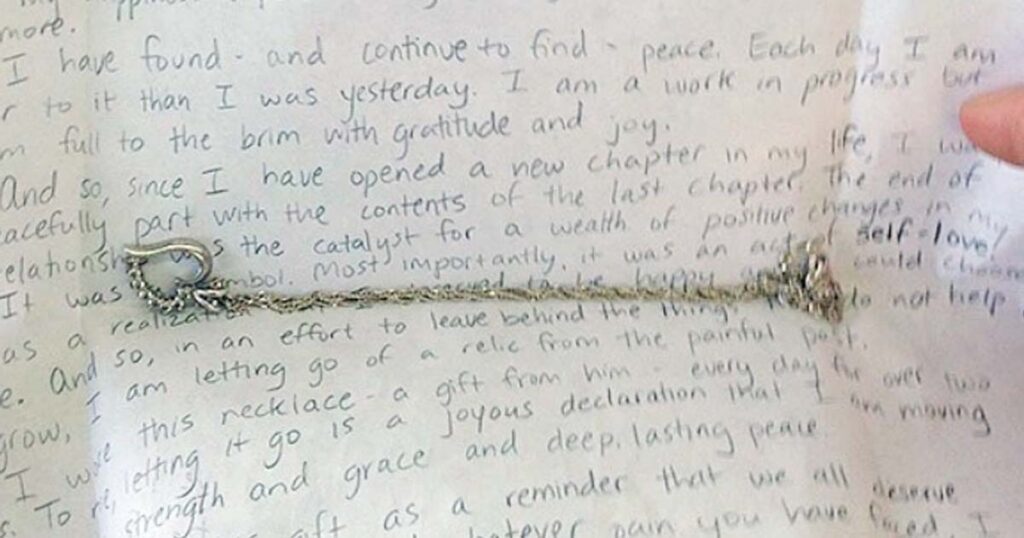 more.
I have found - and continue to find - peace. Each day I am
r to it than I was yesterday. I am a work in progress but
m full to the brim with gratitude and joy.
And so, since I have opened a new chapter in my life, I
acefully part with the contents of the last chapter. The end of
elationsh the catalyst for a wealth of positive changes in my
It was mbol. Most importantly, it was an act of self-love/
as a realizati to be happy could choose
e. And so, in an effort to leave behind the things do not help
grow, I am letting go of a relic from the painful past.
I wore this necklace - a gift from him - every day for over two
s. To letting it go is a joyous declaration that I am moving
strength and grace and deep, lasting peace.
as a reminder that we all deserve
hatever pain you have faced. I